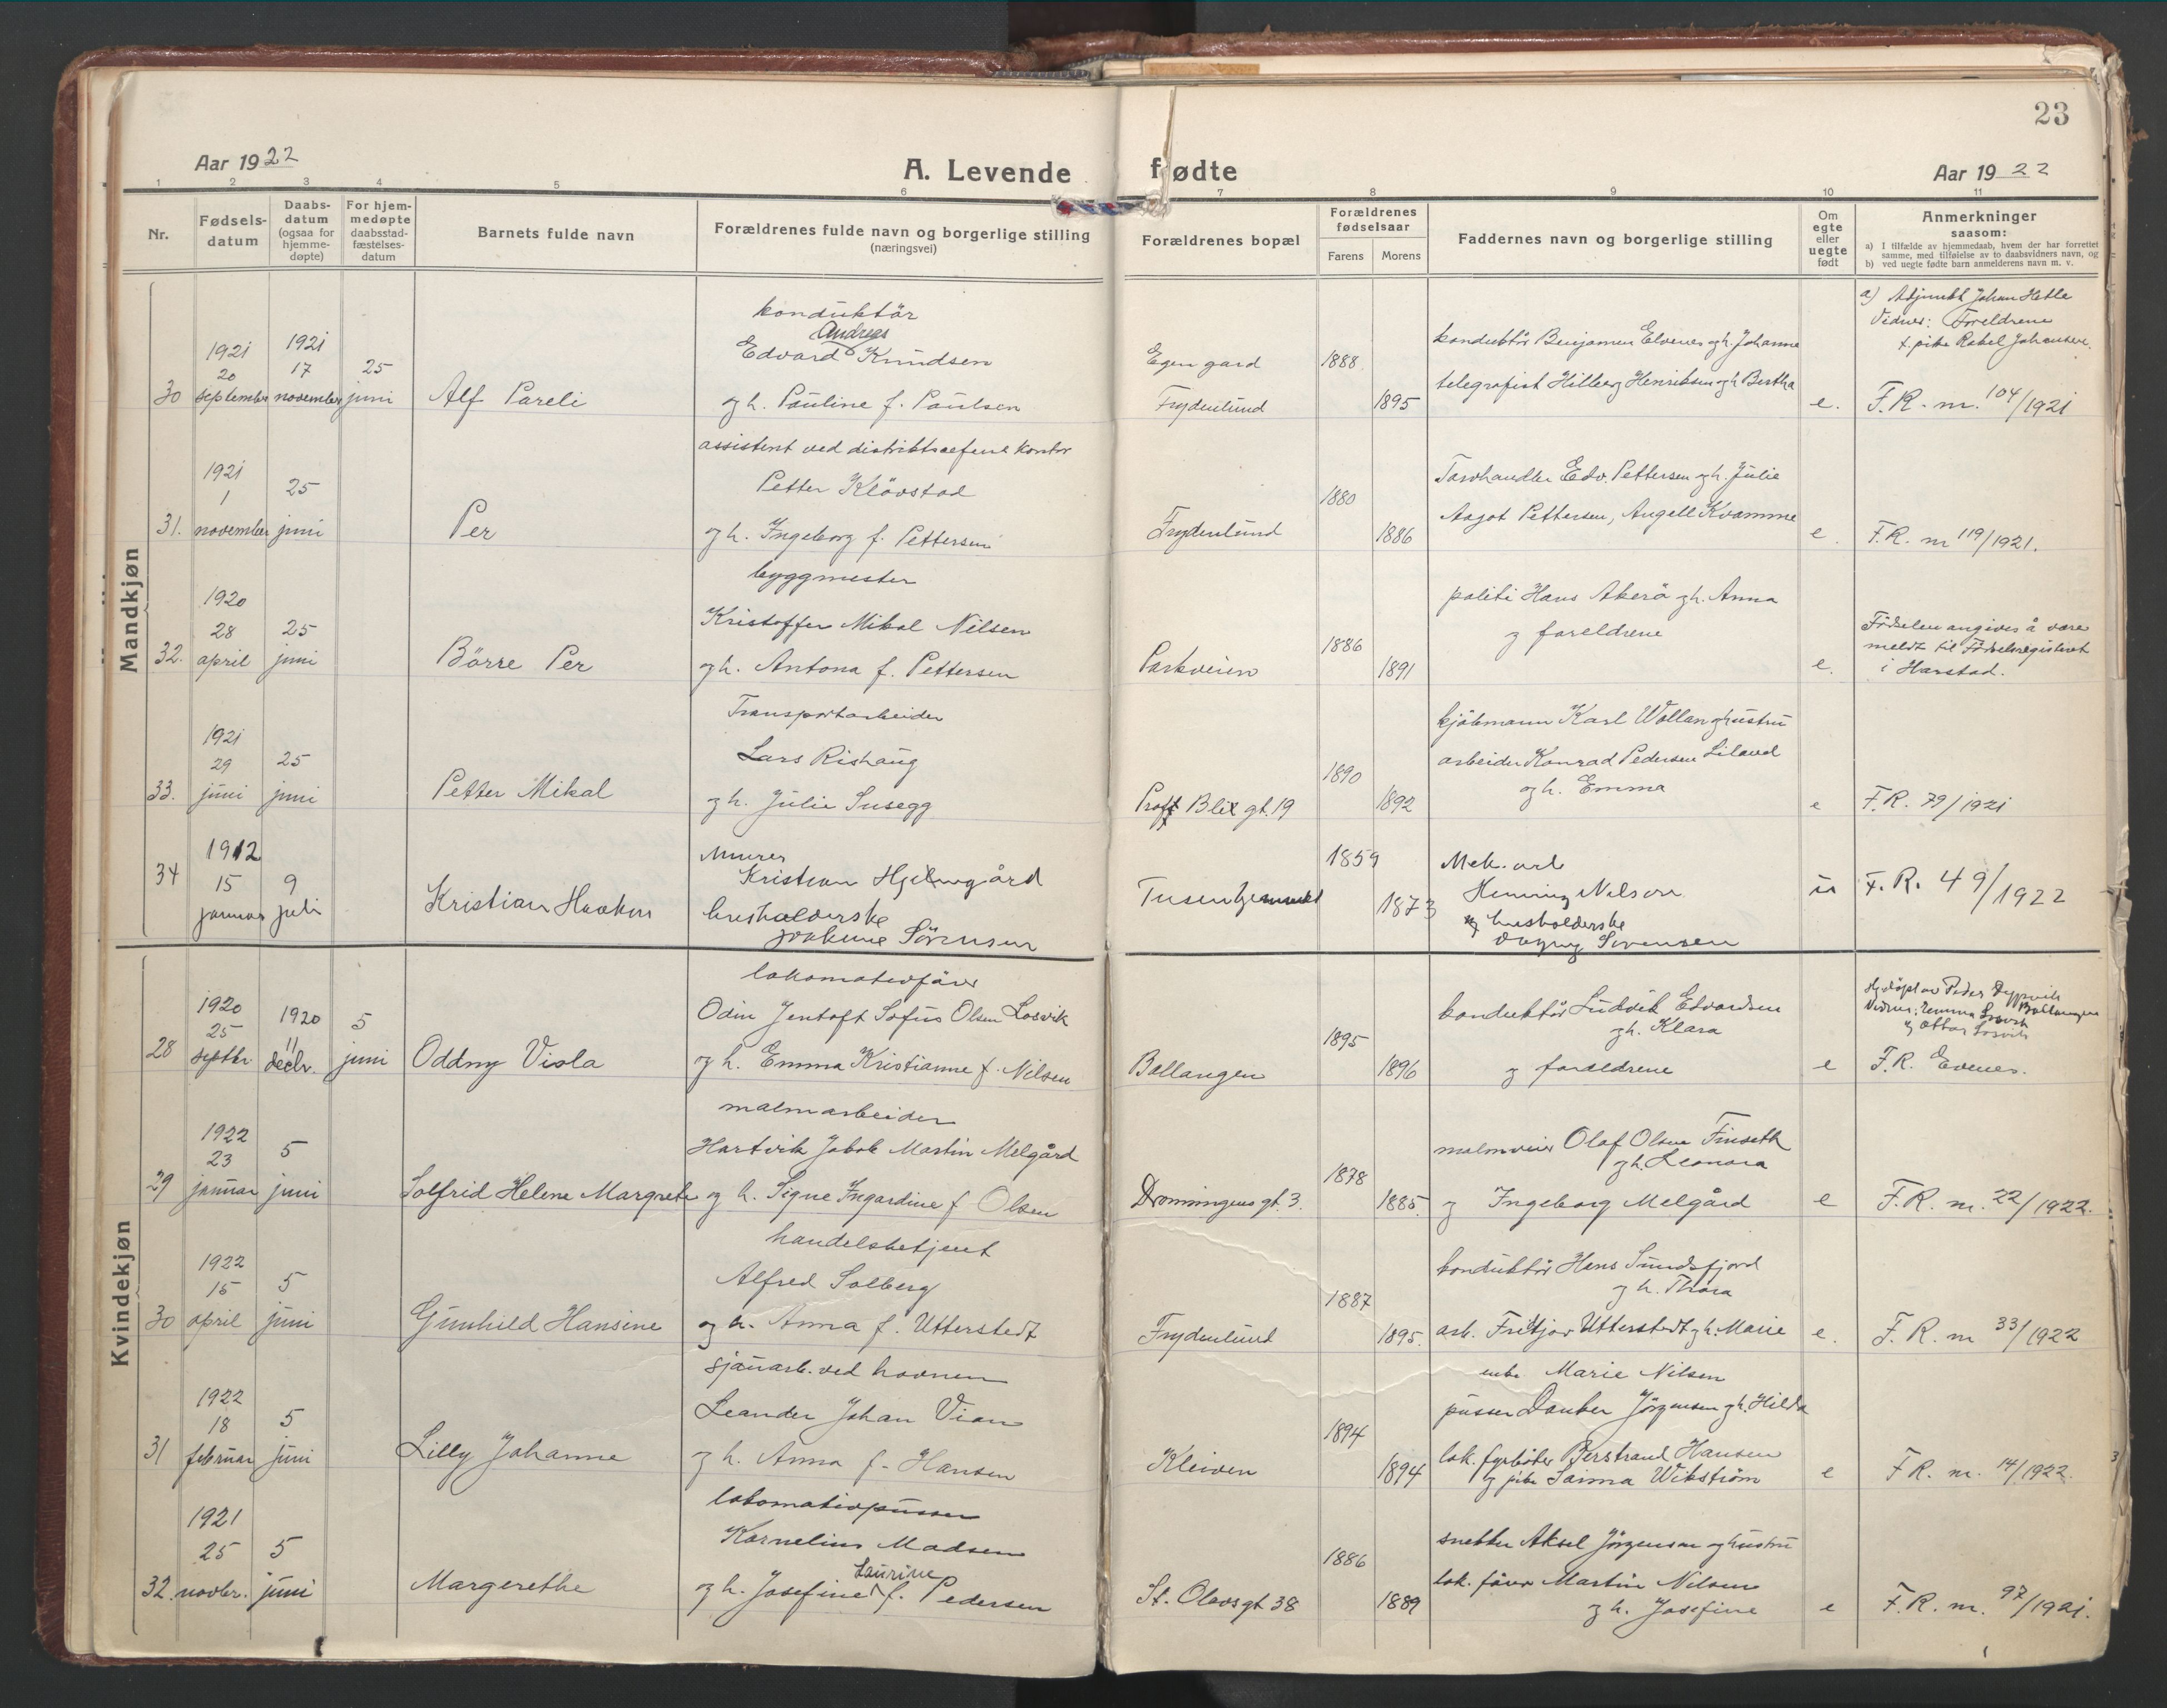 23
Aar 1922
A. Levende fødte
Aar 1922
1 2 3 4 5 6 7 8 9 10 11
Nr.
Fødsels-
datum
Daabs-
datum
(ogsaa for
hjemme-
døpte)
For hjem-
medøpte
daabsstad-
fæstelses-
datum
Barnets fulde navn
Forældrenes fulde navn og borgerlige stilling
(næringsvei)
Forældrenes bopæl
Forældrenes
fødselsaar
Farens Morens
Faddernes navn og borgerlige stilling
Om
egte
eller
uegte
født
Anmerkninger
saasom:
a) I tilfælde av hjemmedaab, hvem der har forrettet
samme, med tilføielse av to daabsvidners navn, og
b) ved uegte fødte barn anmelderens navn m. v.
Mandkjøn
30
1921
20
september
1921
17
november
25
juni
Alf Pareli
konduktör
Andreas
Edvard Knudsen
og h. Pauline f. Paulsen
Egen gard
Frydenlund
1888
1895
konduktör Benjamin Elvenes og h. Johanne
telegrafist Hilberg Henriksen og h. Bertha
e.
a) Adjunkt Johan Hetle
Vidner: Foreldrene
+ pike Rakel Johansen.
F.R. nr. 104/1921
31.
1921
1
november
25
juni
Per
assistent ved distriktssjefens kontor
Petter Klövstad
og h. Ingeborg f. Pettersen
Frydenlund
1880
1886
Edv. Pettersen og h. Julie
Aagot Pettersen, Angell Kvamme
e.
F.R. nr 119/1921.
32.
1920
28
april
25
juni
Börre Per
byggmester
Kristoffer Mikal Nilsen
og h. Antona f. Pettersen
Parkveien
1886
1891
politi Hans Akerö og h. Anna
og foreldrene
e.
Födselen angives å være
meldt til Födselsregisteret
i Harstad.
33.
1921
29
juni
25
juni
Petter Mikal
Transportarbeider
Lars Rishaug
og h. Julie Susegg
Proff Blix gt. 19
1890
1892
kjöbmann Karl Wollan og hustru
arbeider Konrad Pedersen Liland
og h. Emma
e
F.R. 79/1921
34
1912
15
januar
9
juli
Kristian Haakon
Murer
Kristian Hjelmgård
husholderske
Sörensen
1859
1873
Mek. arb
Henning Nilsen
og husholderske
Dagny Sörensen
u
F.R. 49/1922
Kvindekjøn
28
1920
25
septbr.
1920
11
decbr.
5
juni
Oddny Viola
lokomotivförer
Odin Jentoft Sofus Olsen Losvik
og h. Emma Kristianne f. Nilsen
Ballangen
1895
1896
konduktör Ludvik Edvardsen
og h. Klara
og foreldrene
e
Hjdöpt av Peder Dypvik
Ballangen
Vidner: Emma Losvik
og Ottar Losvik
F.R. Evenes.
29
1922
23
januar
5
juni
Solfrid Helene Margrete
malmarbeider
Hartvik Jakob Martin Melgård
og h. Signe Ingardine f Olsen
Dronningens gt. 3.
1878
1885.
malmveier Olaf Olsen Finseth
og h. Leonora
og Ingeborg Melgård
e
F.R. nr. 22/1922.
30
1922
15
april
5
juni
Gunhild Hansine
handelsbetjent
Alfred Solberg
og h. Anna f. Utterstedt
Frydenlund
1887
1895.
konduktör Hans Sundsfjord
og h. Thora
arb. Fritjov Utterstedt og h. Marie
e.
F.R. nr 33/1922
31
1922
18
februar
5
juni
Lilly Johanne
sjauarb. ved havnen
Leander Johan Vian
og h. Anna f. Hansen
Kleiven
1894
1894
enke Marie Nilsen
pusser Dauber Jörgensen og h. Hilda
lok. fyrböter Berstrand Hansen
og pike Saima Wikström
e
F.R. nr. 14/1922.
32.
1921
25
novbr.
5
juni
Margerethe
lokomotivpusser
Kornelius Madsen
Laurine
og h. Josefine f. Pedersen
St. Olavsgt 38
1886
1889
snekker Aksel Jörgensen og hustru
lok. förer Martin Nilsen
og h. Josefine
e
F.R. nr. 97/1921.